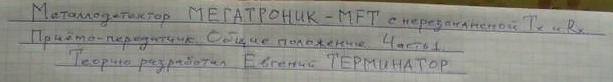 Металлодетектор МЕГАТРОНИК-MFT с нерезонансной Tx и Rx
Приёмо-передатчик Общие положение Часть 1
Теорию разработал Евгений ТЕРМИНАТОР